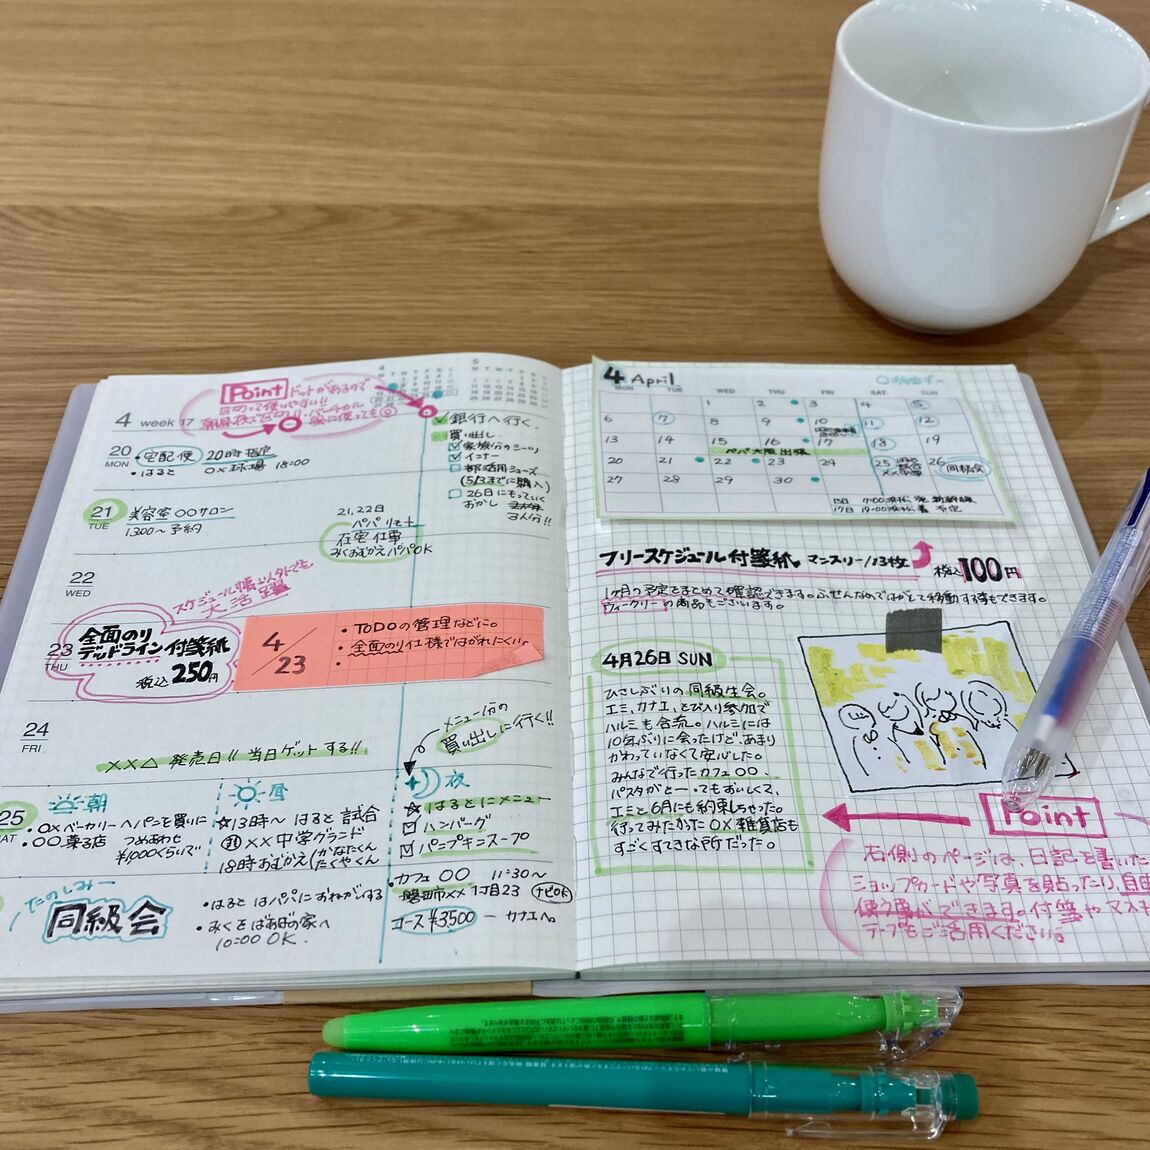 Point ドットがあるので
区切って使いやすい!!
4 week 17
20 MON
・宅配便 20時指定
・はると ○×球場 18:00
✓銀行へ行く.
買い出し
☑家族分のシーツ
☑インナー
□部活用シューズ
(5/3までに購入)
□26日にもっていく
おかし
3人分!!
21 TUE
美容室 ○○サロン
1.300〜予約
21,22日
パパリモート
在宅仕事
みくおむかえパパOK
22 WED
スケジュール帳以外でも
大活躍
23 THU
全面のり
デッドライン付箋紙
税込250円
4/23
・TODOの管理などに。
・全面のり仕様ではがれにくい
・
24 FRI
××△ 発売日!! 当日ゲットする!!
メニュー分の
買い出しに行く!!
25 SAT
朝
・○×ベーカリーへパンを買いに
・○○菓子店 つめあわせ
¥1,000くらいで
昼
☆13時〜 はると 試合
××中学グランド
18時おむかえ(かなたくん
たくやくん
夜
☆はるとにメニュー
☑ハンバーグ
☑パンプキンスープ
たのしみー
同級会
・はると はパパにおねがいする
・みくをばあばの家へ
10:00 OK.
・カフェ ○○ 11:30〜
磐田市×× 1丁目23 ナビOK
コース¥3,500 ー カナエへ。
4 April
MON TUE WED THU FRI SAT SUN
1 2 3 4 5
6 7 8 9 10 11 12
13 14 15 16 17 18 19
パパ大阪出張
20 21 22 23 24 25 26 同級会
27 28 29 30
フリースケジュール付箋紙 マンスリー/13枚 税込100円
1ヶ月の予定をまとめて確認できます。ふせんなのではがして移動する事もできます。
ウィークリーの商品もございます。
4月26日 SUN
ひさしぶりの同級生会。
エミ、カナエ、とび入り参加で
ハルミも合流。ハルミには
10年ぶりに会ったけど、あまり
かわっていなくて安心した。
みんなで行ったカフェ○○.
パスタがとーってもおいしくて、
エミと6月にも約束しちゃった。
行ってみたかった ○×雑貨店も
すごくすてきな所だった。
Point
右側のページは、日記を書いた
ショップカードや写真を貼ったり、自由
使う事ができます。付箋やマス
テープもご活用ください。